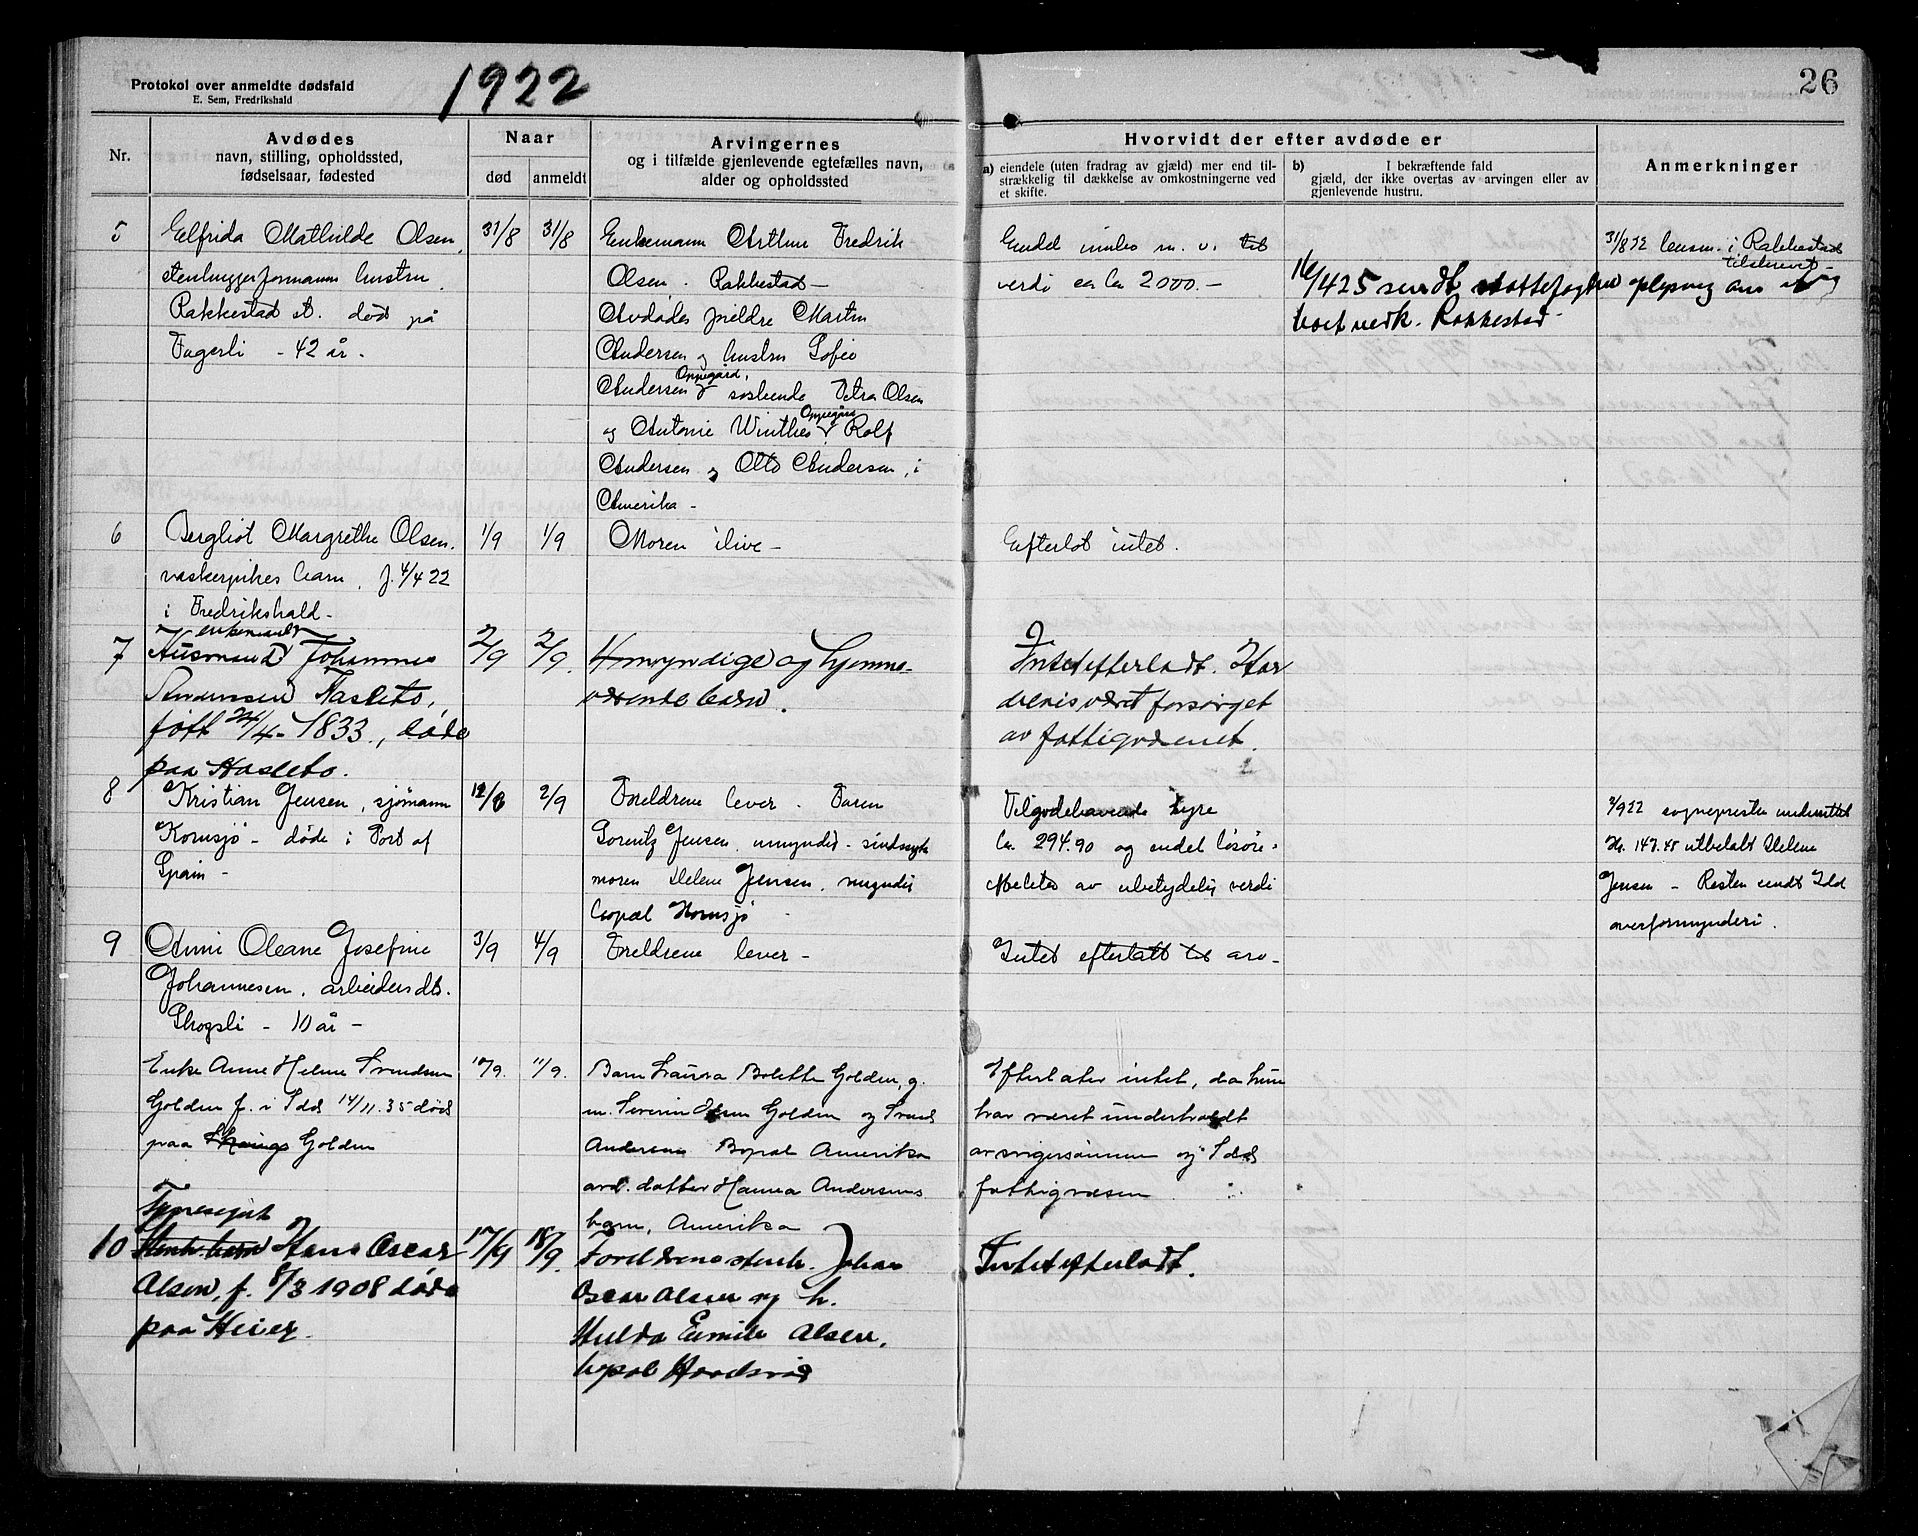 Protokol over anmeldte dødsfald
E. Sem, Fredrikshald
1922
26
Nr.
Avdødes
navn, stilling, opholdssted,
fødselsaar, fødested
Naar
død
anmeldt
Arvingernes
og i tilfælde gjenlevende egtefælles navn,
alder og opholdssted
Hvorvidt der efter avdøde er
a) eiendele (uten fradrag av gjæld) mer end til-
strækkelig til dækkelse av omkostningerne ved
et skifte.
b) I bekræftende fald
gjæld, der ikke overtas av arvingen eller av
gjenlevende hustru.
Anmerkninger
5
Elfrida Mathilde Olsen,
stenhuggerformann hustru
Rakkestad st. død på
Fagerli - 42 år -
31/8
31/8
Enkemann Arthur Fredrik
Olsen. Rakkestad -
Avdødes foreldre Martin
Andersen og hustru Sofie
Andersen Oppegård, søskende Petra Olsen
og Antonie Winther Oppegård Rolf
Andersen og Otto Andersen, i
Amerika -
Endel innbo m. v. til
verdi ca kr 2000.-
16/4 25 sendt skattefogden oplysning om
boet vedk. Rakkestad
31/8 22 lensm. i Rakkestad
tilskrevet -
6
Bergliot Margrethe Olsen.
vaskerpikes barn, f. 4/4 22
i Fredrikshald -
1/9
1/9
Moren ilive -
Efterlot intet.
7
enkemand
Husmand Johannes
Andersen Hasleto,
født 24/4 - 1833, døde
paa Hasleto.
2/9
2/9.
Umyndige og hjemme-
værende barn.
Intet efterladt. Har
delvis været forsørget
av fattigvæsenet.
8
Kristian Jensen, sjømann
Kornsjø - døde i Port of
Spain -
12/8
2/9
Foreldrene lever. Faren
Lorentz Jensen, umyndig - sindssyk
moren Helene Jensen, myndig
bopæl Kornsjø -
Tilgodehavende hyre
kr. 294.90 og endel løsøre-
effekter av ubetydelig verdi
2/9 22 sogneprest underrettet
Kr. 147.45 utbetalt Helene
Jensen - Resten sendt Idd
overformynderi.
9
Anni Oleane Josefine
Johannesen, arbeiders dtr.
Skogsli - 10 år -
3/9
4/9
Foreldrene lever -
Intet efterlatt til arv -
Enke Anne Helene Svendsen
Golden f. i Idd 14/11.35 død
paa Golden
10/9.
11/9.
Barn Laura Bolette Golden, g.
m. Severin Olsen Golden og Svend
Andersen Bopæl Amerika
avd. datter Hanna Andersens
barn, Amerika
Efterlater intet, da hun
har været underholdt
av svigersønnen og Idds
fattigvæsen
Tjenestejent
10
Hans Oscar
Olsen, f. 8/3 1908 døde
paa Heier.
17/9
18/9.
Foreldrene Johan
Oscar Olsen og h.
Hulda Emilie Olsen.
bopæl
Intet efterladt.